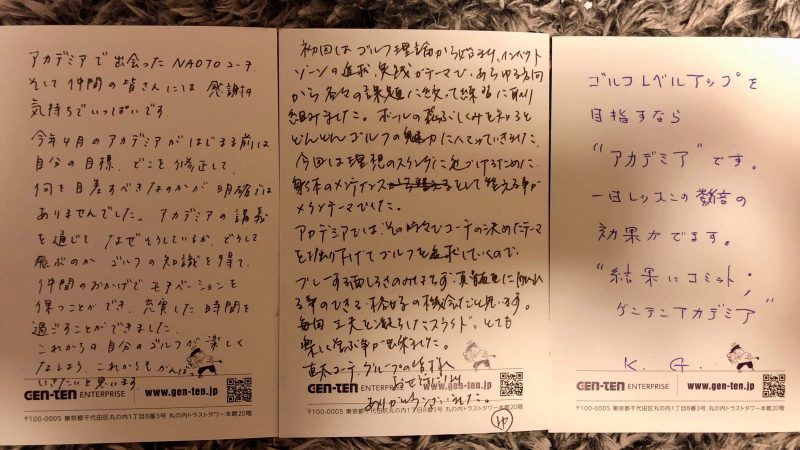 アカデミアで出会った NAOTOコーチ、
そして仲間の皆さんには 感謝の
気持ちでいっぱいです。
今年4月のアカデミアがはじまる前は、
自分の目標、どこを修正して、
何を目差すべきなのかが明確では
ありませんでした。アカデミアの講義
を通じて なぜそうしているか、どうして
飛ぶのか ゴルフの知識を得て、
仲間のおかげでモチベーションを
保つことができ、充実した時間を
過ごすことができました。
これからの自分のゴルフが楽しく
なるよう、これからもがんばって
いきたいと思います。
GEN-TEN ENTERPRISE www.gen-ten.jp
〒100-0005 東京都千代田区丸の内1丁目8番3号 丸の内トラストタワー本館20階
初回はゴルフ理論から始まり、インパクト
ゾーンの追求、実践がテーマで、あらゆる方向
から各々の課題に絞って練習に取り
組みました。ボールの
どんどんゴルフの魅力に入っていきました。
今回は理想のスイングに近づけるために、
身体のメンテナンスとして整える事が
メインテーマでした。
アカデミアでは、その時々でコーチの決めたテーマ
を掘り下げてゴルフを追求していくので、
プレーする面しろさのみならず、真髄に触れ
る事のできる絶好の機会だと思います。
毎回 工夫を凝らしたスライド、とても
楽しく学ぶ事が出来ました。
コーチ、グループの皆様へ
ありがとうございました。
GEN-TEN ENTERPRISE www.gen-ten.jp
〒100-0005 東京都千代田区丸の内1丁目8番3号 丸の内トラストタワー本館20階
ゴルフLベルアップを
目指すなら
"アカデミア"です。
一日レッスンの数倍の
効果がでます。
"結果にコミット;
ゲンテンアカデミア"
K. G.
GEN-TEN ENTERPRISE www.gen-ten.jp
〒100-0005 東京都千代田区丸の内1丁目8番3号 丸の内トラストタワー本館20階